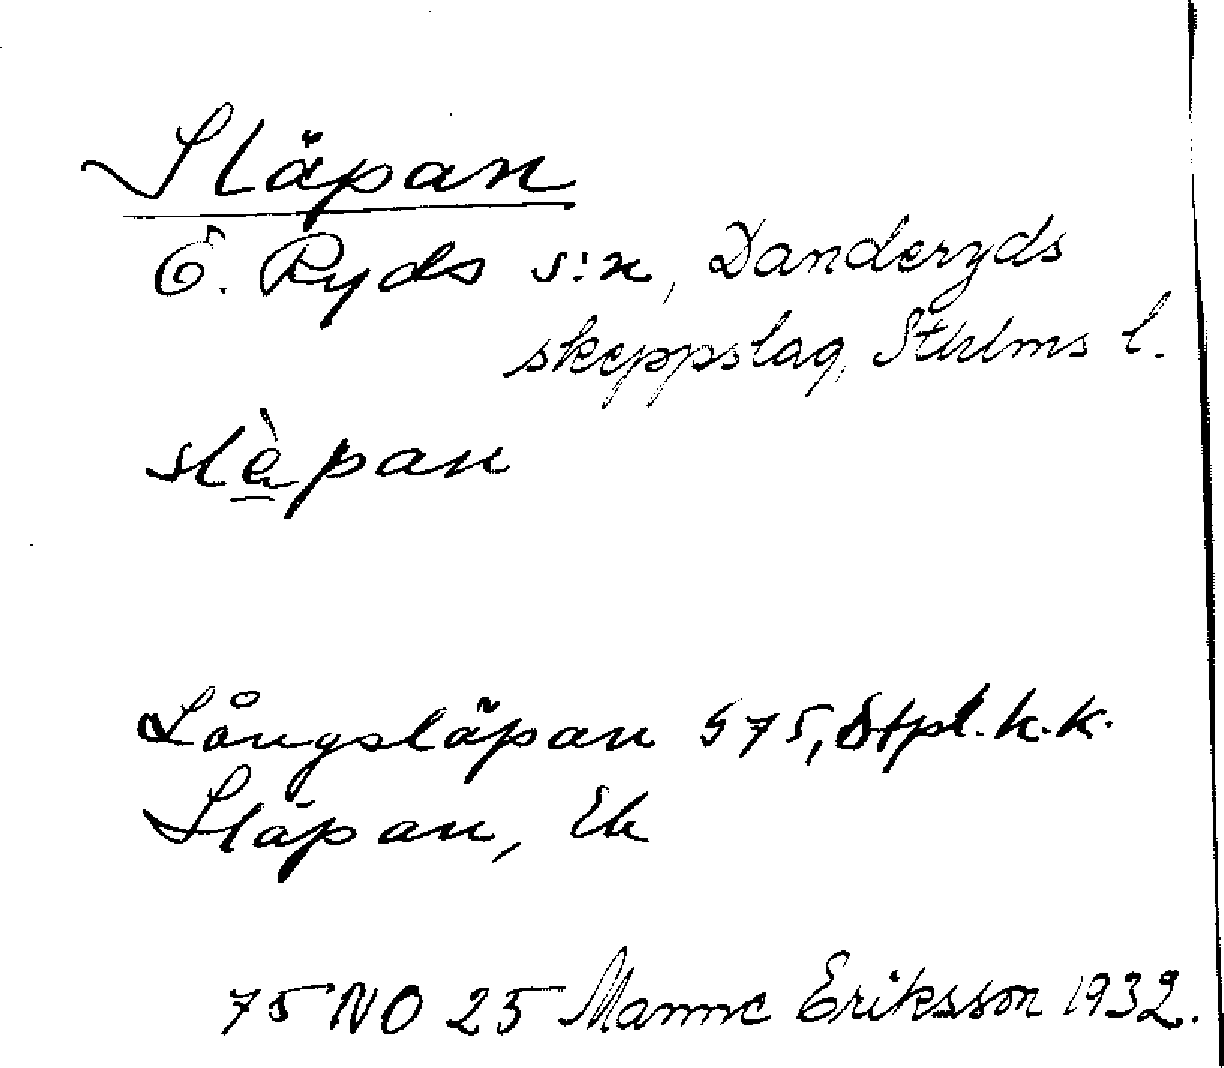 Släpan
Ö. Ryds s:n, Danderyds
skeppslag, Sthlms l.
slὲpan
Långsläpan S 75, Stpl. k.k.
Släpan, Ek
75 NO 25 Manne Eriksson 1932.